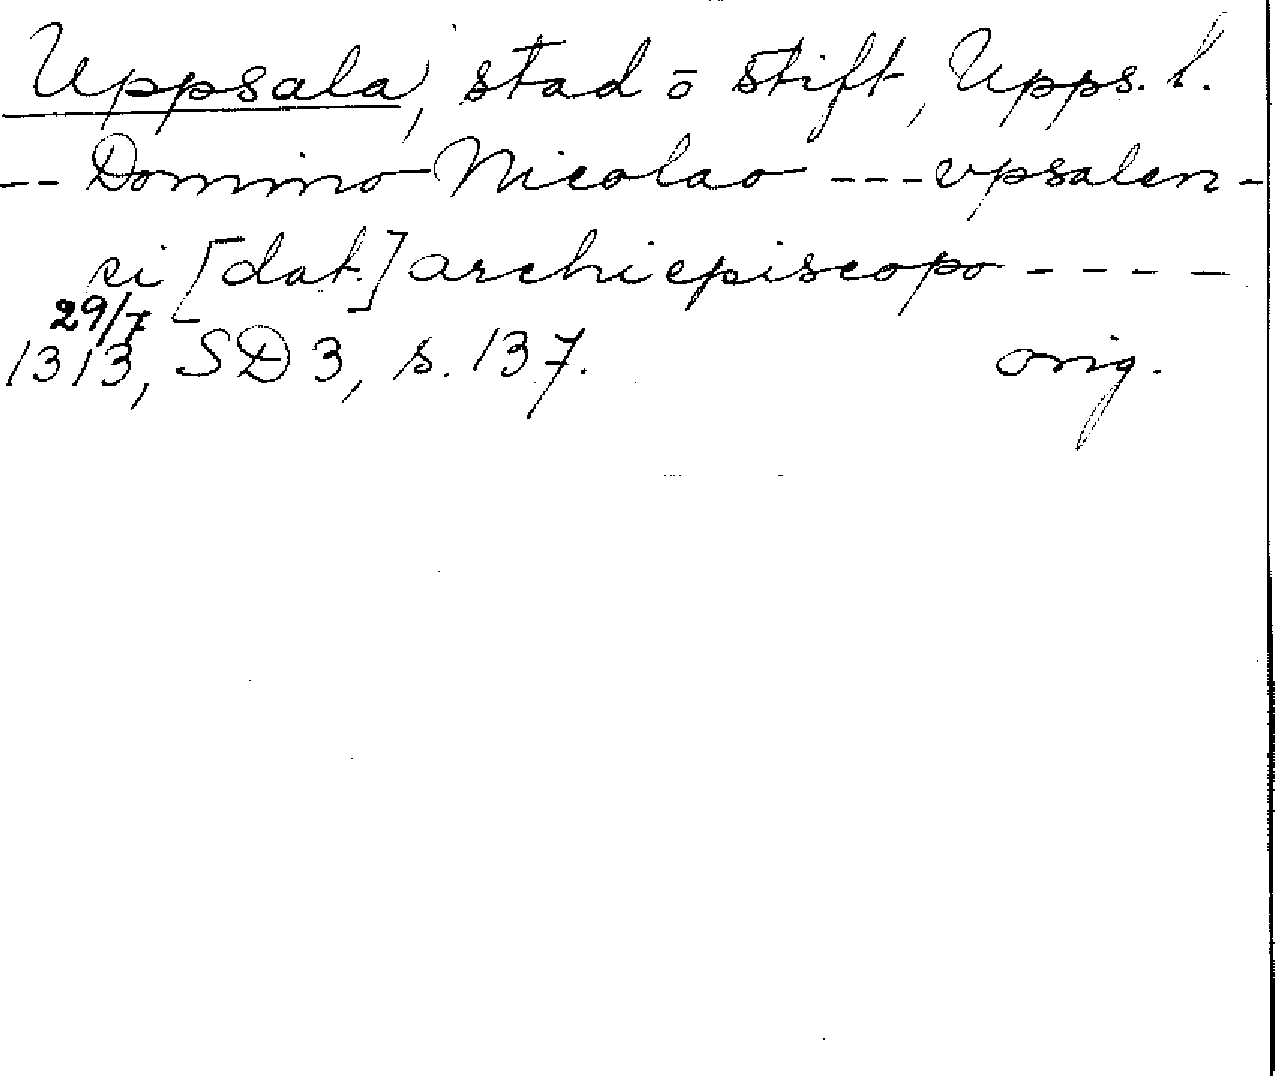 Uppsala, stad ō stift, Upps. l.
-- Domino Nicolao --- vpsalen-
si [dat.] archiepiscopo ----
29/7
1313, SD 3, s. 137. orig.